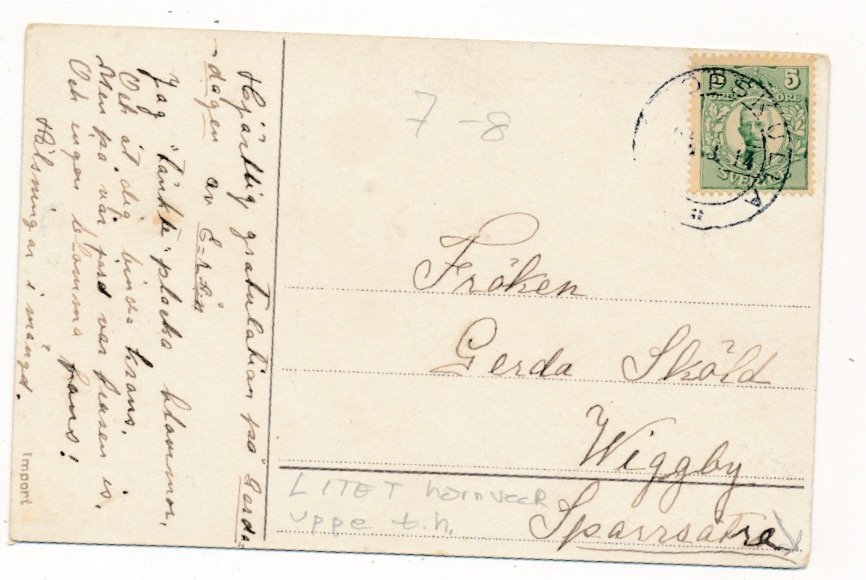 Hjärtlig gratulation på Gerda=
-dagen av
Jag "tänkte" plocka blommor,
Och åt dig binda krans,
Men på vår jord var bara is,
Och ingen blomma fanns!
Hälsningar i mängd.
Import
7-8
5
ÖRE
SVERIGE
OPSKULLA
3.14
Fröken
Gerda Sköld
Wiggby
Sparrsätra
LITET hörnveck
uppe t.h.